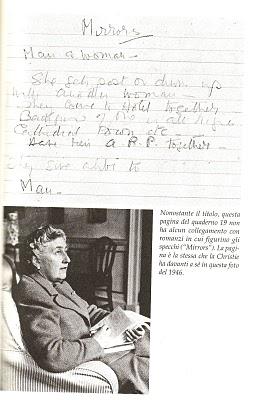 Mirrors
Man & woman -
She gets past or down up
with another woman -
They come to Hotel together
of in all
Cathedral Town etc -
together -
They give alibi to
Man -
Nonostante il titolo, questa
pagina del quaderno 19 non
ha alcun collegamento con
romanzi in cui figurino gli
specchi ("Mirrors"). La pagi-
na è la stessa che la Christie
ha davanti a sé in questa foto
del 1946.